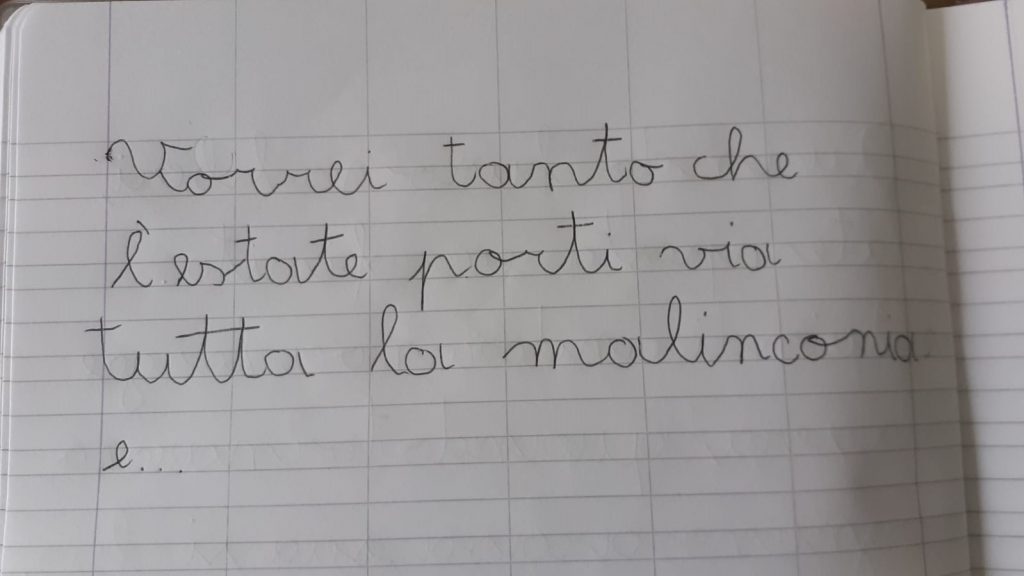 Vorrei tanto che
l'estate porti via
tutta la malinconia
e...